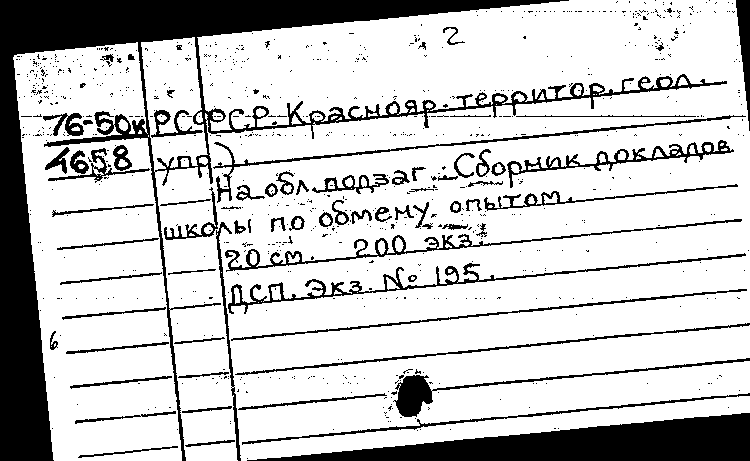 2
76-50к РСФСР. Краснояр. территор. геол.
4658 упр.).
На обл. подзаг.: Сборник докладов
школы по обмену опытом.
20 см. 200 экз.
ДСП. Экз. № 195.
6